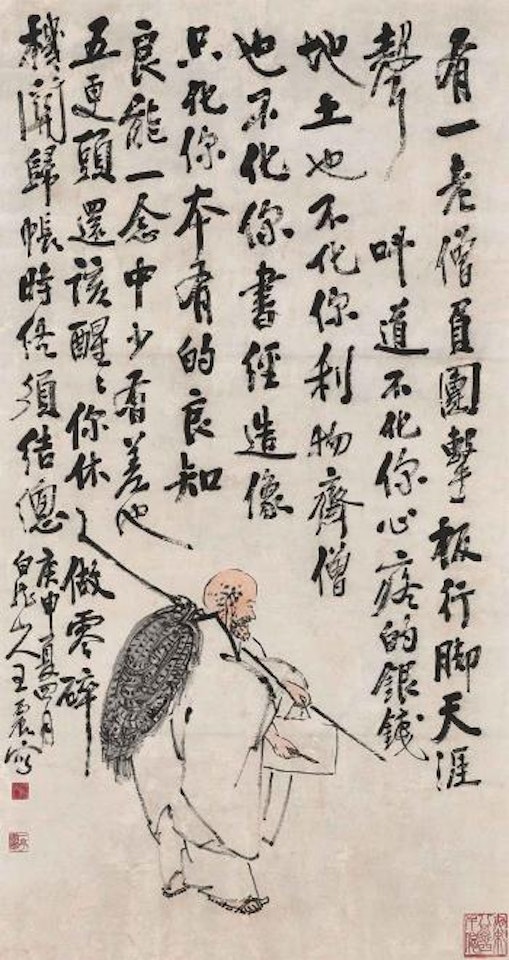 有一老僧負團擊板行脚天涯
聲叫道不化你心疼的銀錢
地土也不化你利物齊僧
也不化你書經造像
只化你本有的良知
良能一念中少有差池
五更頭還該醒〻你休做零碎
機關歸帳時候須結總
庚申夏四月
白龍山人王震寫